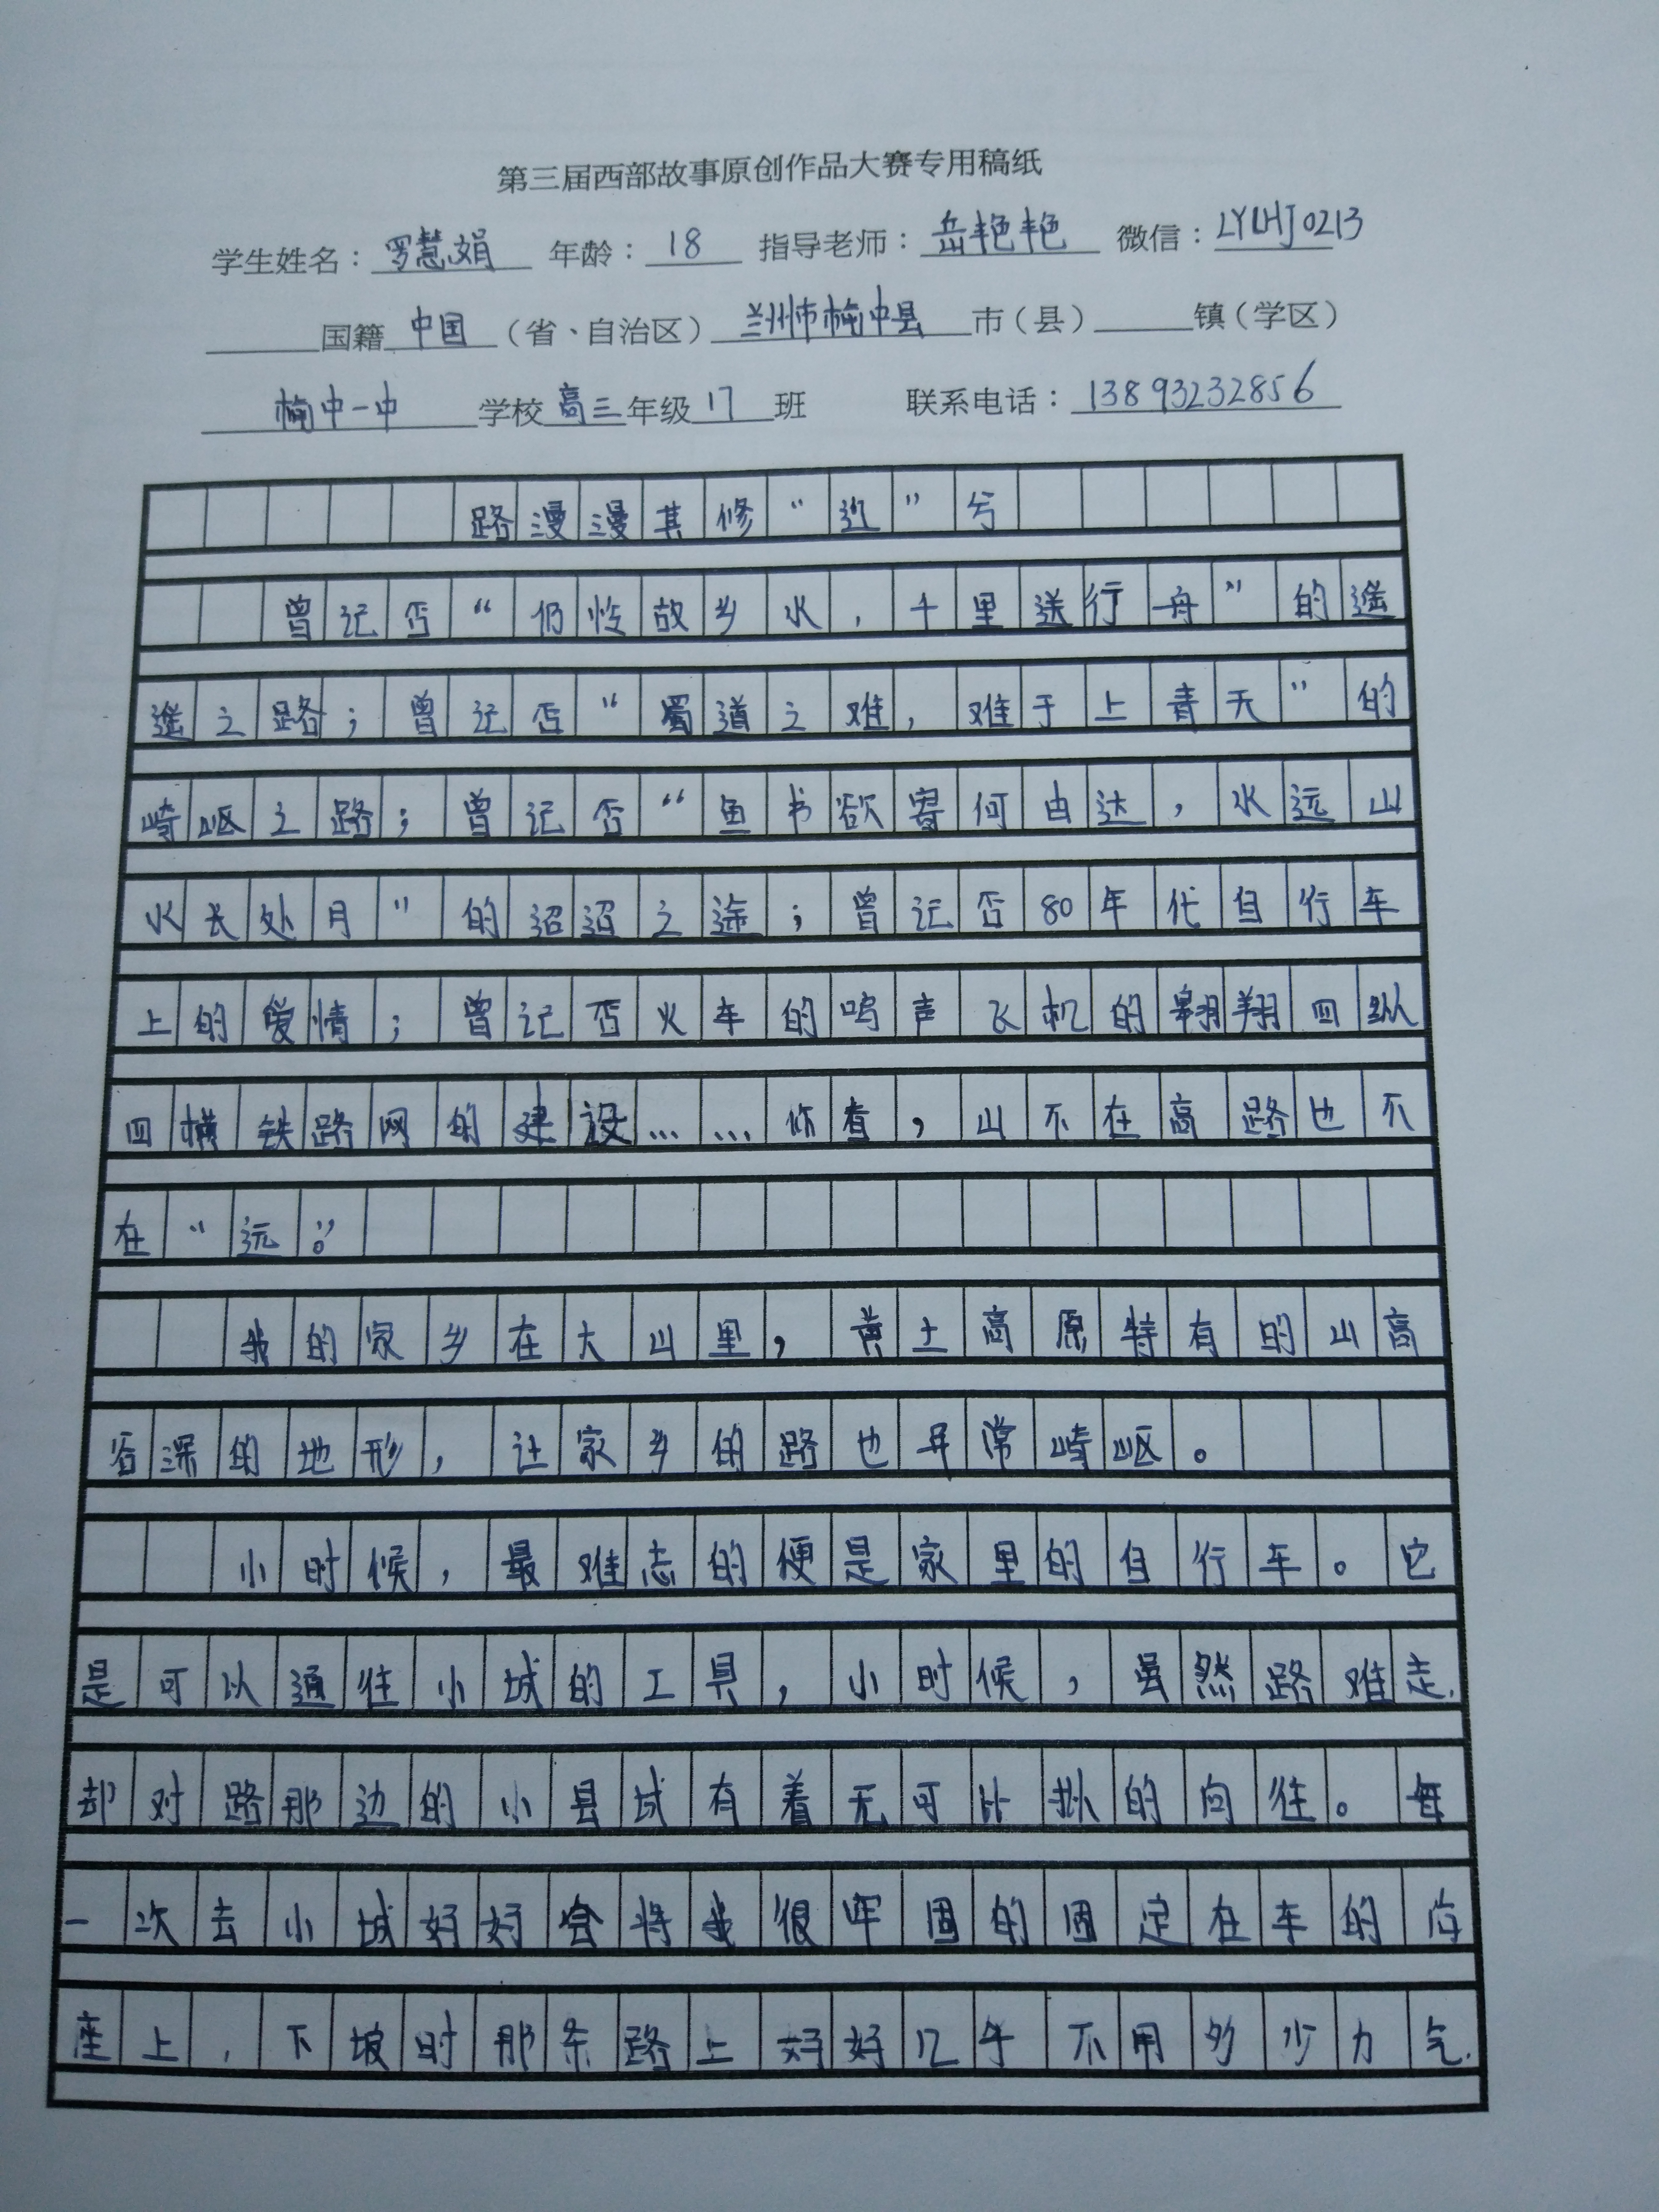 第三届西部故事原创作品大赛专用稿纸
学生姓名：罗慧娟 年龄：18 指导老师：岳艳艳 微信：LYLHJ0213
国籍 中国 （省、自治区）兰州市榆中县 市（县） 镇（学区）
榆中一中 学校 高三 年级 17 班 联系电话：13893232856
路漫漫其修“近”兮
曾记否“仍怜故乡水，千里送行舟”的遥
遥之路；曾记否“蜀道之难，难于上青天”的
崎岖之路；曾记否“鱼书欲寄何由达，水远山
水长处月”的迢迢之途；曾记否80年代自行车
上的爱情；曾记否火车的鸣声飞机的翱翔四纵
四横铁路网的建设……你看，山不在高路也不
在“远”。
我的家乡在大山里，黄土高原特有的山高
谷深的地形，让家乡的路也异常崎岖。
小时候，最难忘的便是家里的自行车。它
是可以通往小城的工具，小时候，虽然路难走，
却对路那边的小县城有着无可比拟的向往。每
一次去小城妈妈会将我很牢固的固定在车的后
座上，下坡时那条路上妈妈几乎不用多少力气，